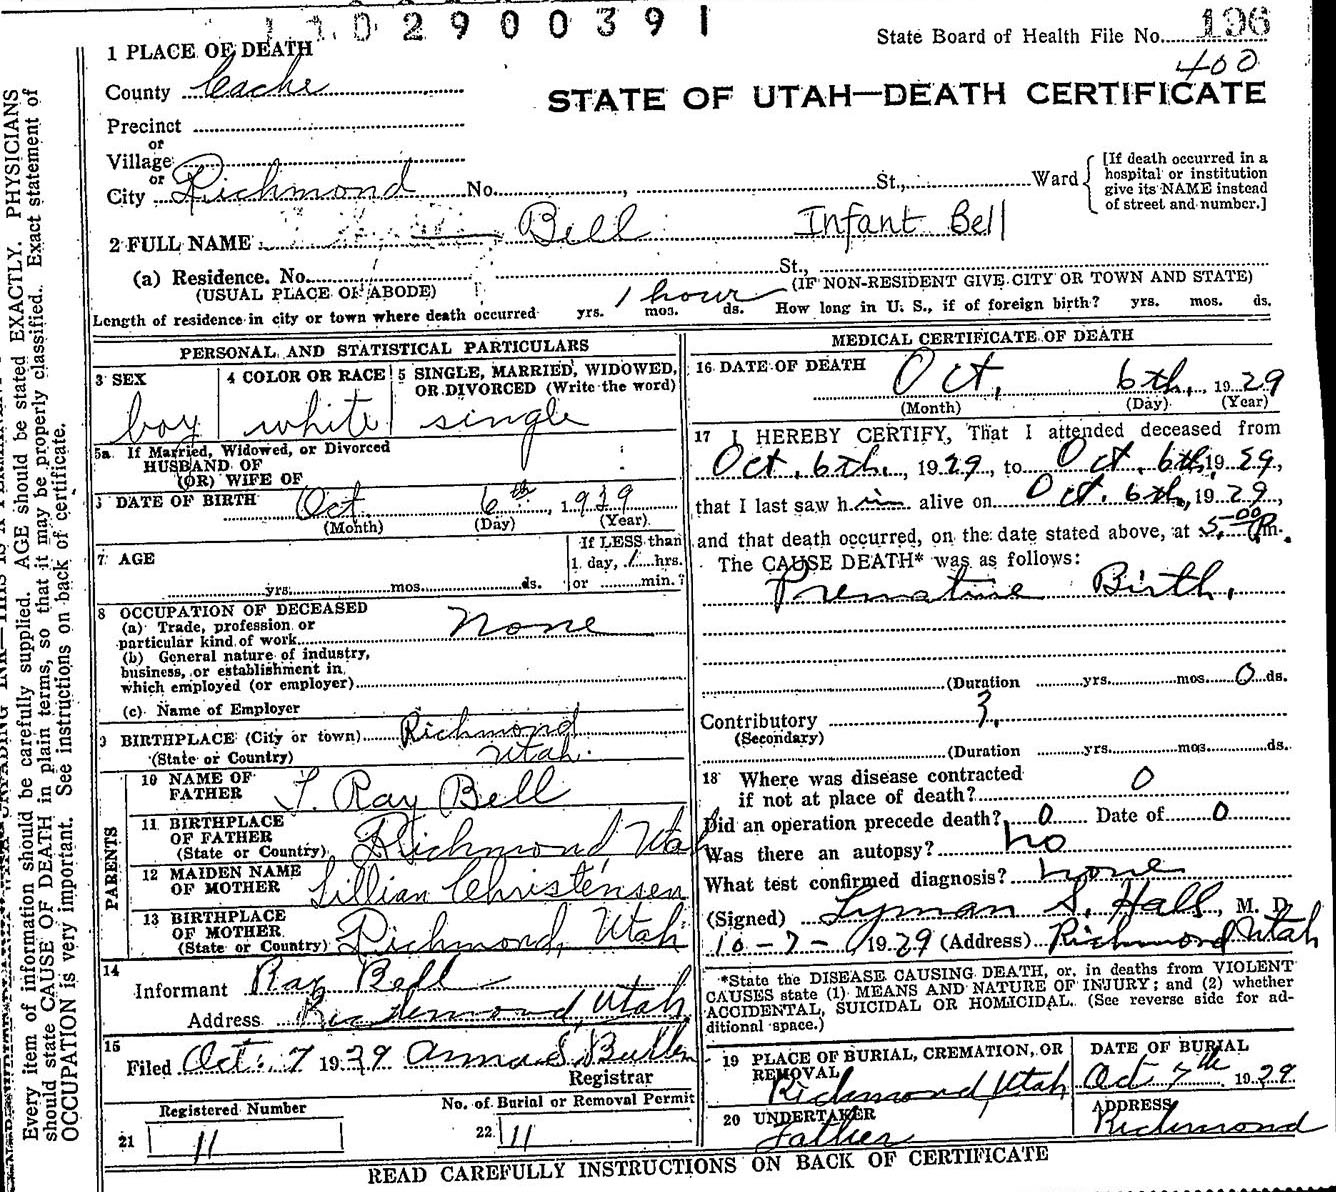 1102900391
State Board of Health File No. 196
400
1 PLACE OF DEATH
County Cache
STATE OF UTAH—DEATH CERTIFICATE
Precinct
or
Village
or
City Richmond No. , St., Ward
[If death occurred in a
hospital or institution
give its NAME instead
of street and number.]
2 FULL NAME Bell Infant Bell
(a) Residence. No. St.,
(USUAL PLACE OF ABODE) (IF NON-RESIDENT GIVE CITY OR TOWN AND STATE)
Length of residence in city or town where death occurred yrs. 1 hour mos. ds. How long in U. S., if of foreign birth? yrs. mos. ds.
PERSONAL AND STATISTICAL PARTICULARS
3 SEX 4 COLOR OR RACE 5 SINGLE, MARRIED, WIDOWED,
OR DIVORCED (Write the word)
boy white single
5a If Married, Widowed, or Divorced
HUSBAND OF
(OR) WIFE OF
DATE OF BIRTH Oct 6th, 1929
(Month) (Day) (Year)
7 AGE If LESS than
1 day, 1 hrs.
yrs. mos. ds. or min.?
8 OCCUPATION OF DECEASED
(a) Trade, profession or
particular kind of work None
(b) General nature of industry,
business, or establishment in
which employed (or employer)
(c) Name of Employer
9 BIRTHPLACE (City or town) Richmond
(State or Country) Utah.
PARENTS
10 NAME OF
FATHER Ray Bell
11 BIRTHPLACE
OF FATHER
(State or Country) Richmond, Utah
12 MAIDEN NAME
OF MOTHER Lillian Christensen
13 BIRTHPLACE
OF MOTHER
(State or Country) Richmond, Utah
14
Informant Ray Bell
Address Richmond, Utah
15
Filed Oct. 7 1929 Anna S. Bullen
Registrar
Registered Number No. of Burial or Removal Permit
21 11 22 11
MEDICAL CERTIFICATE OF DEATH
16 DATE OF DEATH Oct, 6th, 1929
(Month) (Day) (Year)
17 I HEREBY CERTIFY, That I attended deceased from
Oct. 6th, 1929, to Oct. 6th, 1929,
that I last saw him alive on Oct. 6th, 1929,
and that death occurred, on the date stated above, at 5:00 Pm.
The CAUSE DEATH* was as follows:
Premature Birth.
(Duration yrs. mos. 0 ds.
Contributory ?.
(Secondary)
(Duration yrs. mos. ds.
18 Where was disease contracted
if not at place of death? 0
Did an operation precede death? 0 Date of 0
Was there an autopsy? no
What test confirmed diagnosis? none
(Signed) Lyman S. Hall, M. D.
10-7- 1929 (Address) Richmond Utah
*State the DISEASE CAUSING DEATH, or, in deaths from VIOLENT
CAUSES state (1) MEANS AND NATURE OF INJURY; and (2) whether
ACCIDENTAL, SUICIDAL OR HOMICIDAL. (See reverse side for ad-
ditional space.)
19 PLACE OF BURIAL, CREMATION, OR
REMOVAL
Richmond, Utah
DATE OF BURIAL
Oct 7th 1929
20 UNDERTAKER
Father
ADDRESS
Richmond
READ CAREFULLY INSTRUCTIONS ON BACK OF CERTIFICATE
Every item of information should be carefully supplied. AGE should be stated EXACTLY. PHYSICIANS
should state CAUSE OF DEATH in plain terms, so that it may be properly classified. Exact statement of
OCCUPATION is very important. See instructions on back of certificate.